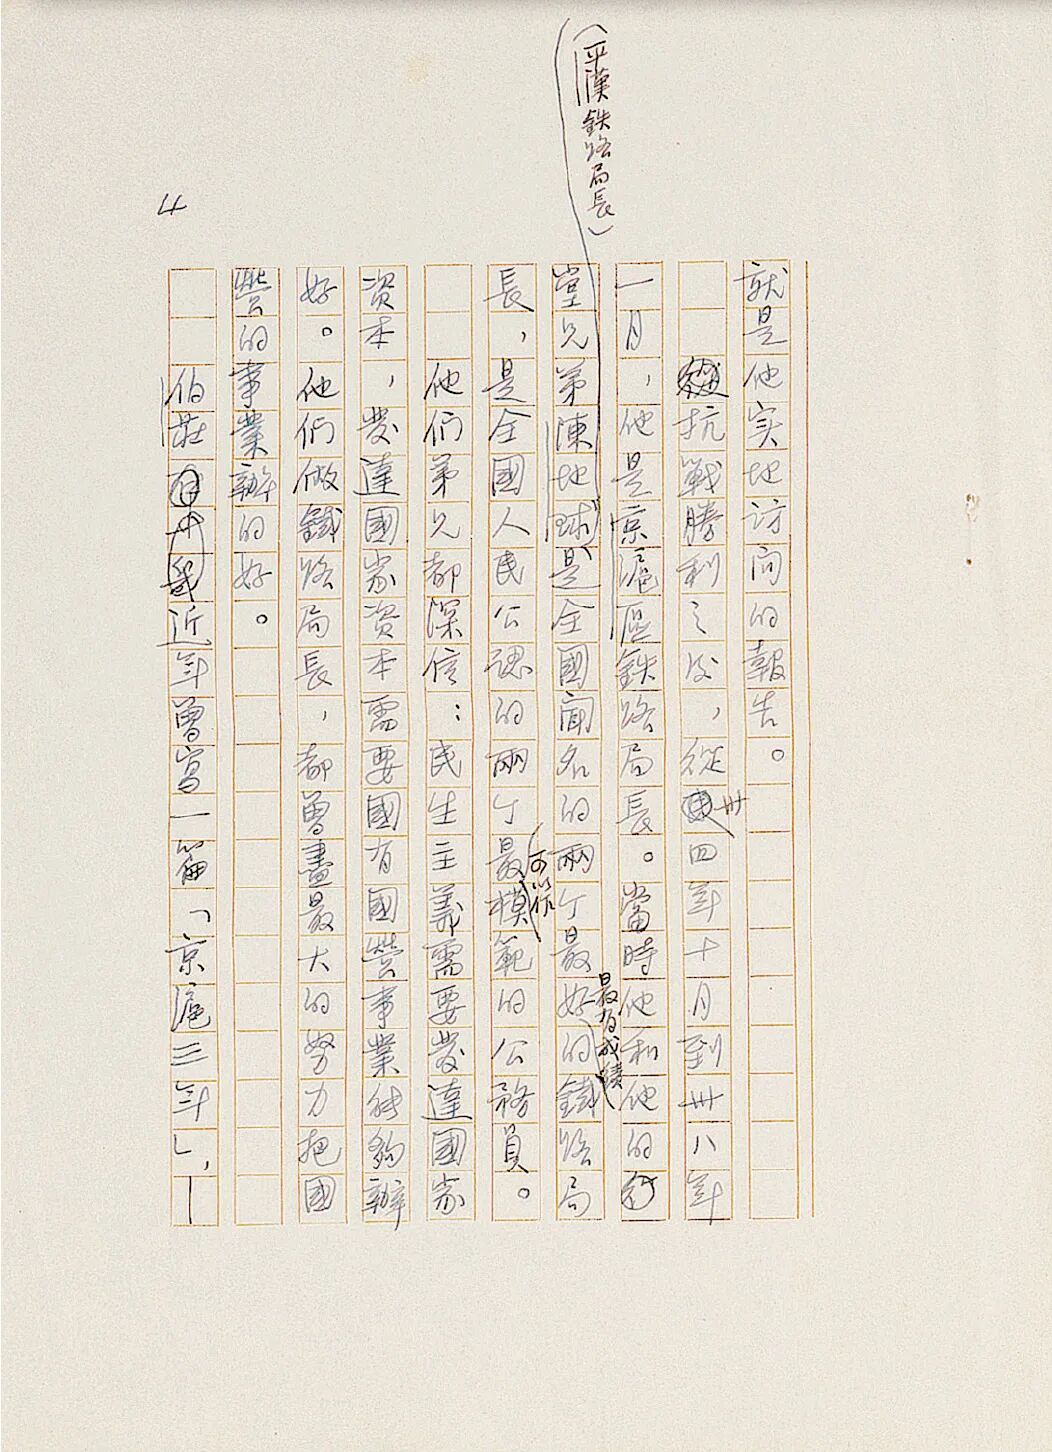 4
就是他实地访问的報告。
抗戰勝利之后，從卅四年十月到卅八年
一月，他是京滬區鉄路局長。當時他和他的
堂兄弟陳地球（平漢鉄路局長）是全國闻名的兩个最好的最有成績鐵路局
長，是全國人民公認的兩个最可以作模範的公務員。
他們弟兄都深信：民生主義需要發達國家
資本，發達國家資本需要國有國營事業能夠辦
好。他們做鐵路局長，都曾盡最大的努力把國
營的事業辦的好。
伯莊近年曾寫一篇「京滬三年」，—